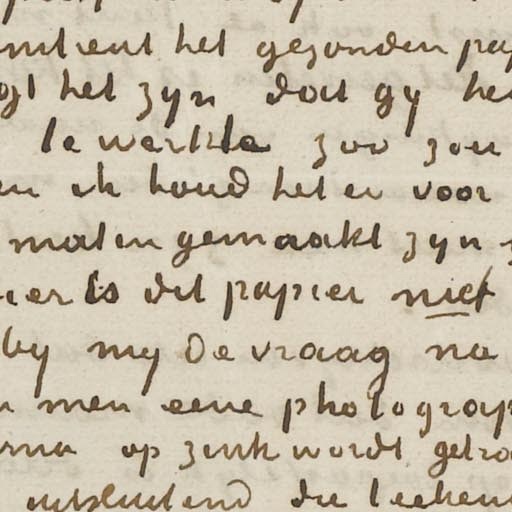 omtrent het gezonden pap
ogt het zyn dat gy het
te werkte zoo zou
en ik houd het er voor
maten gemaakt zyn
ier is dit papier niet
by my de vraag na
men eene photograp
rna op zink wordt getro
uitsluitend die teeken